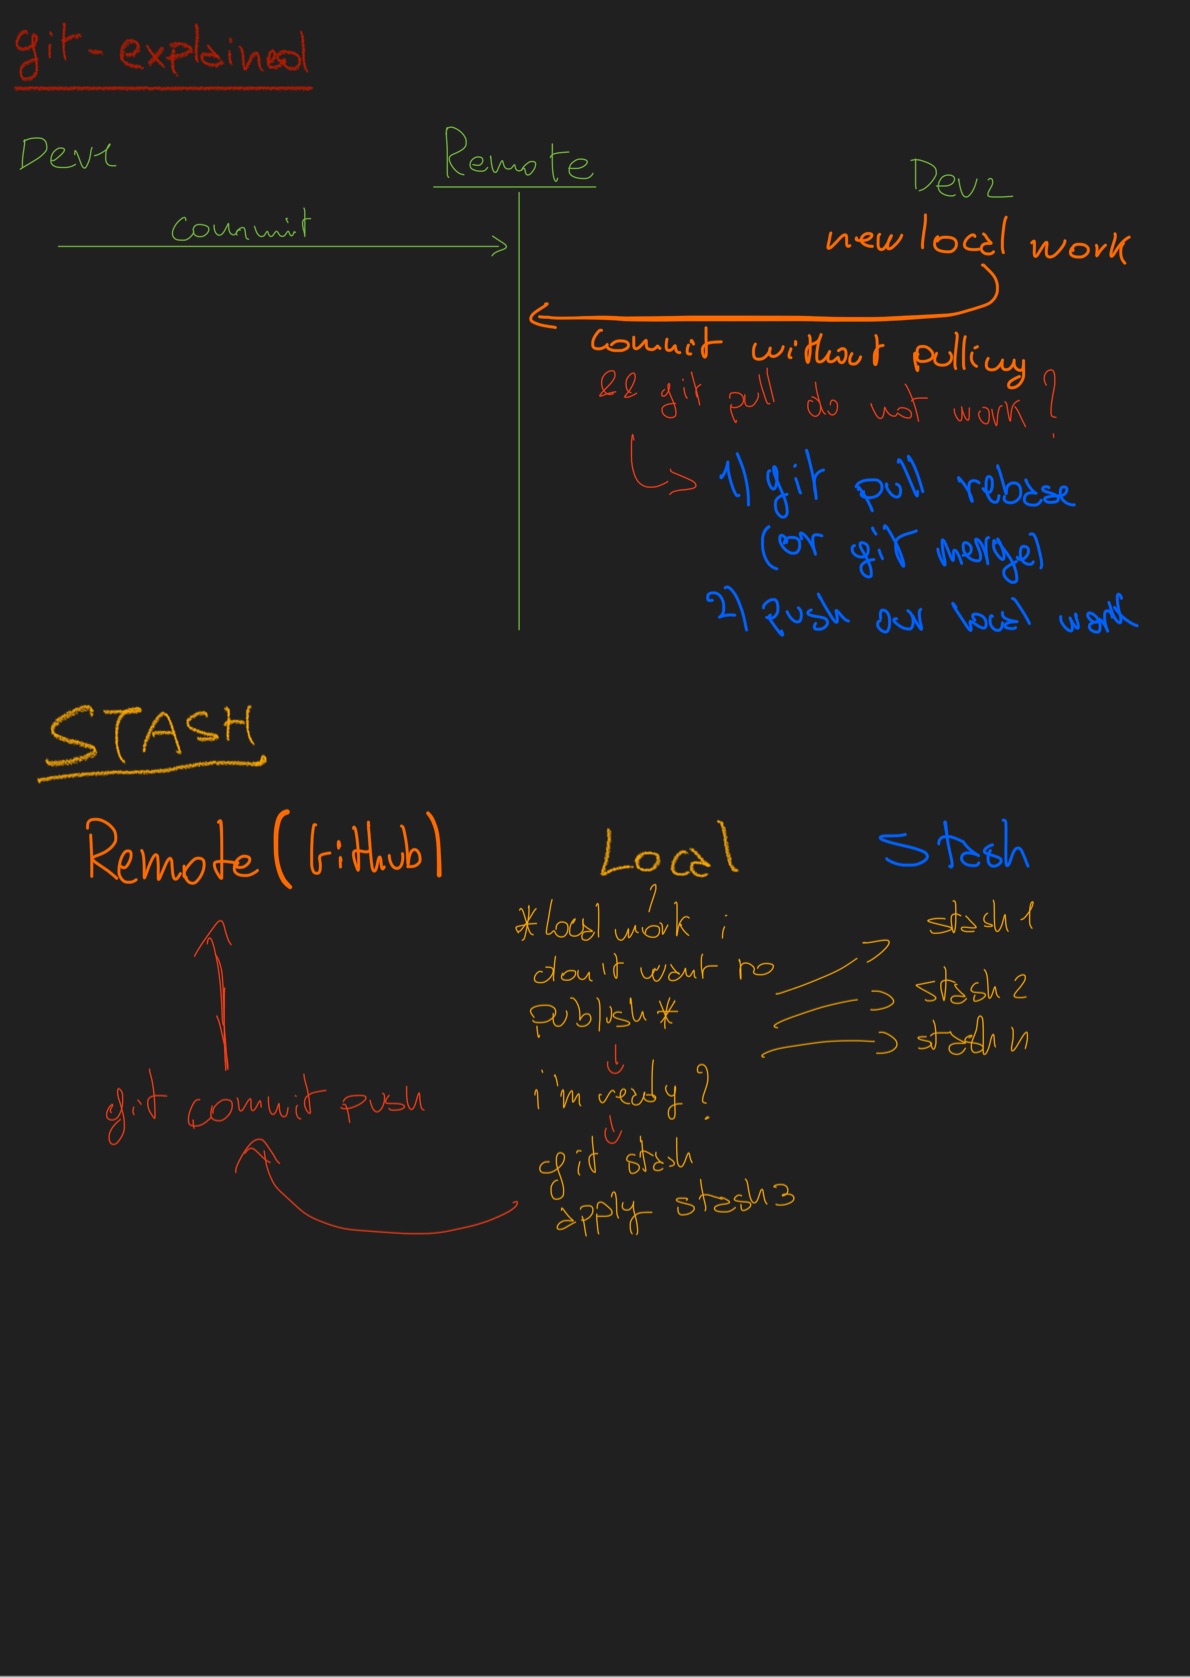 git-explained
Dev1
Remote
Dev2
commit
new local work
commit without pulling
&& git pull do not work?
1) git pull rebase
(or git merge)
2) push our local work
STASH
Remote (Github)
Local
Stash
*local work i
don't want to
publish*
stash 1
stash 2
stash n
i'm ready?
git commit push
git stash
apply stash3